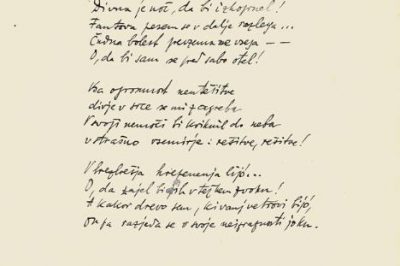 Divna je noč, da bi izkoprnel!
Fantova pesem se v dalje razlega...
Čudna bolest prevzema me vsega — —
O, da bi sam se pred sabo otel!
Vsa ogromnost neutešitve
divje v srce se mi zagreba
V svoji nemoči bi kriknil do neba
v strašno vsemirje: rešitve, rešitve!
V brezbrežja hrepenenja lijó...
O, da zajel bi jih v težkem zvoku!
A kakor drevo sem, ki vanj vetrovi bijó,
razjeda se v svoje joku.